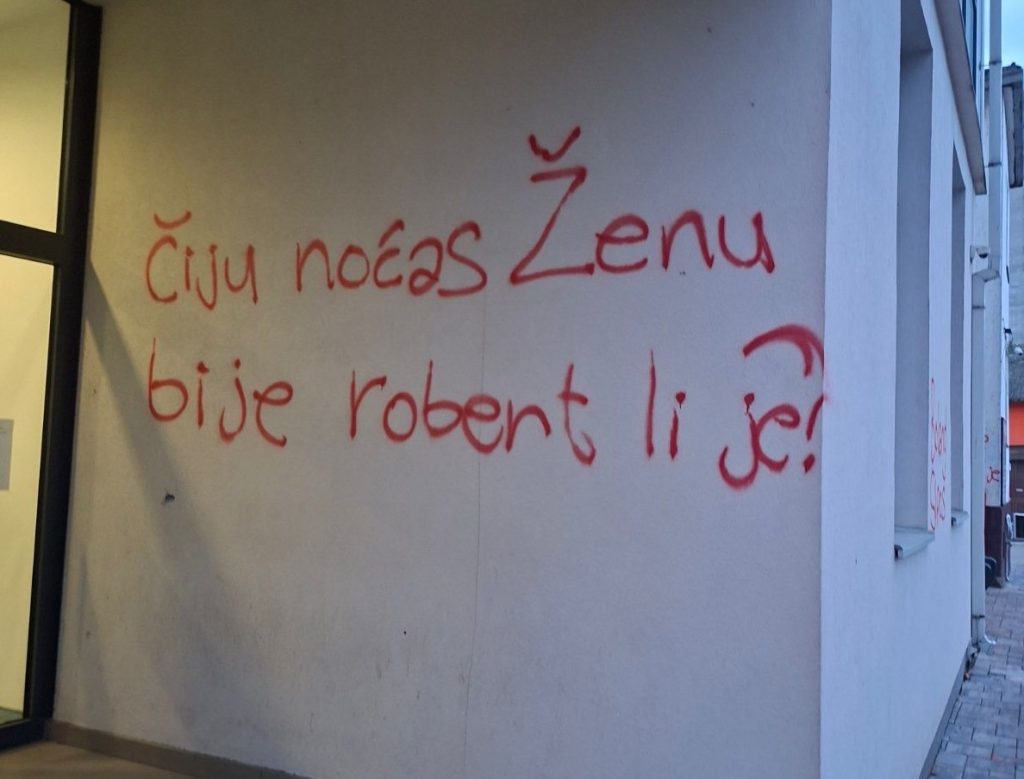 čiju noćas Ženu
bije robert li je?